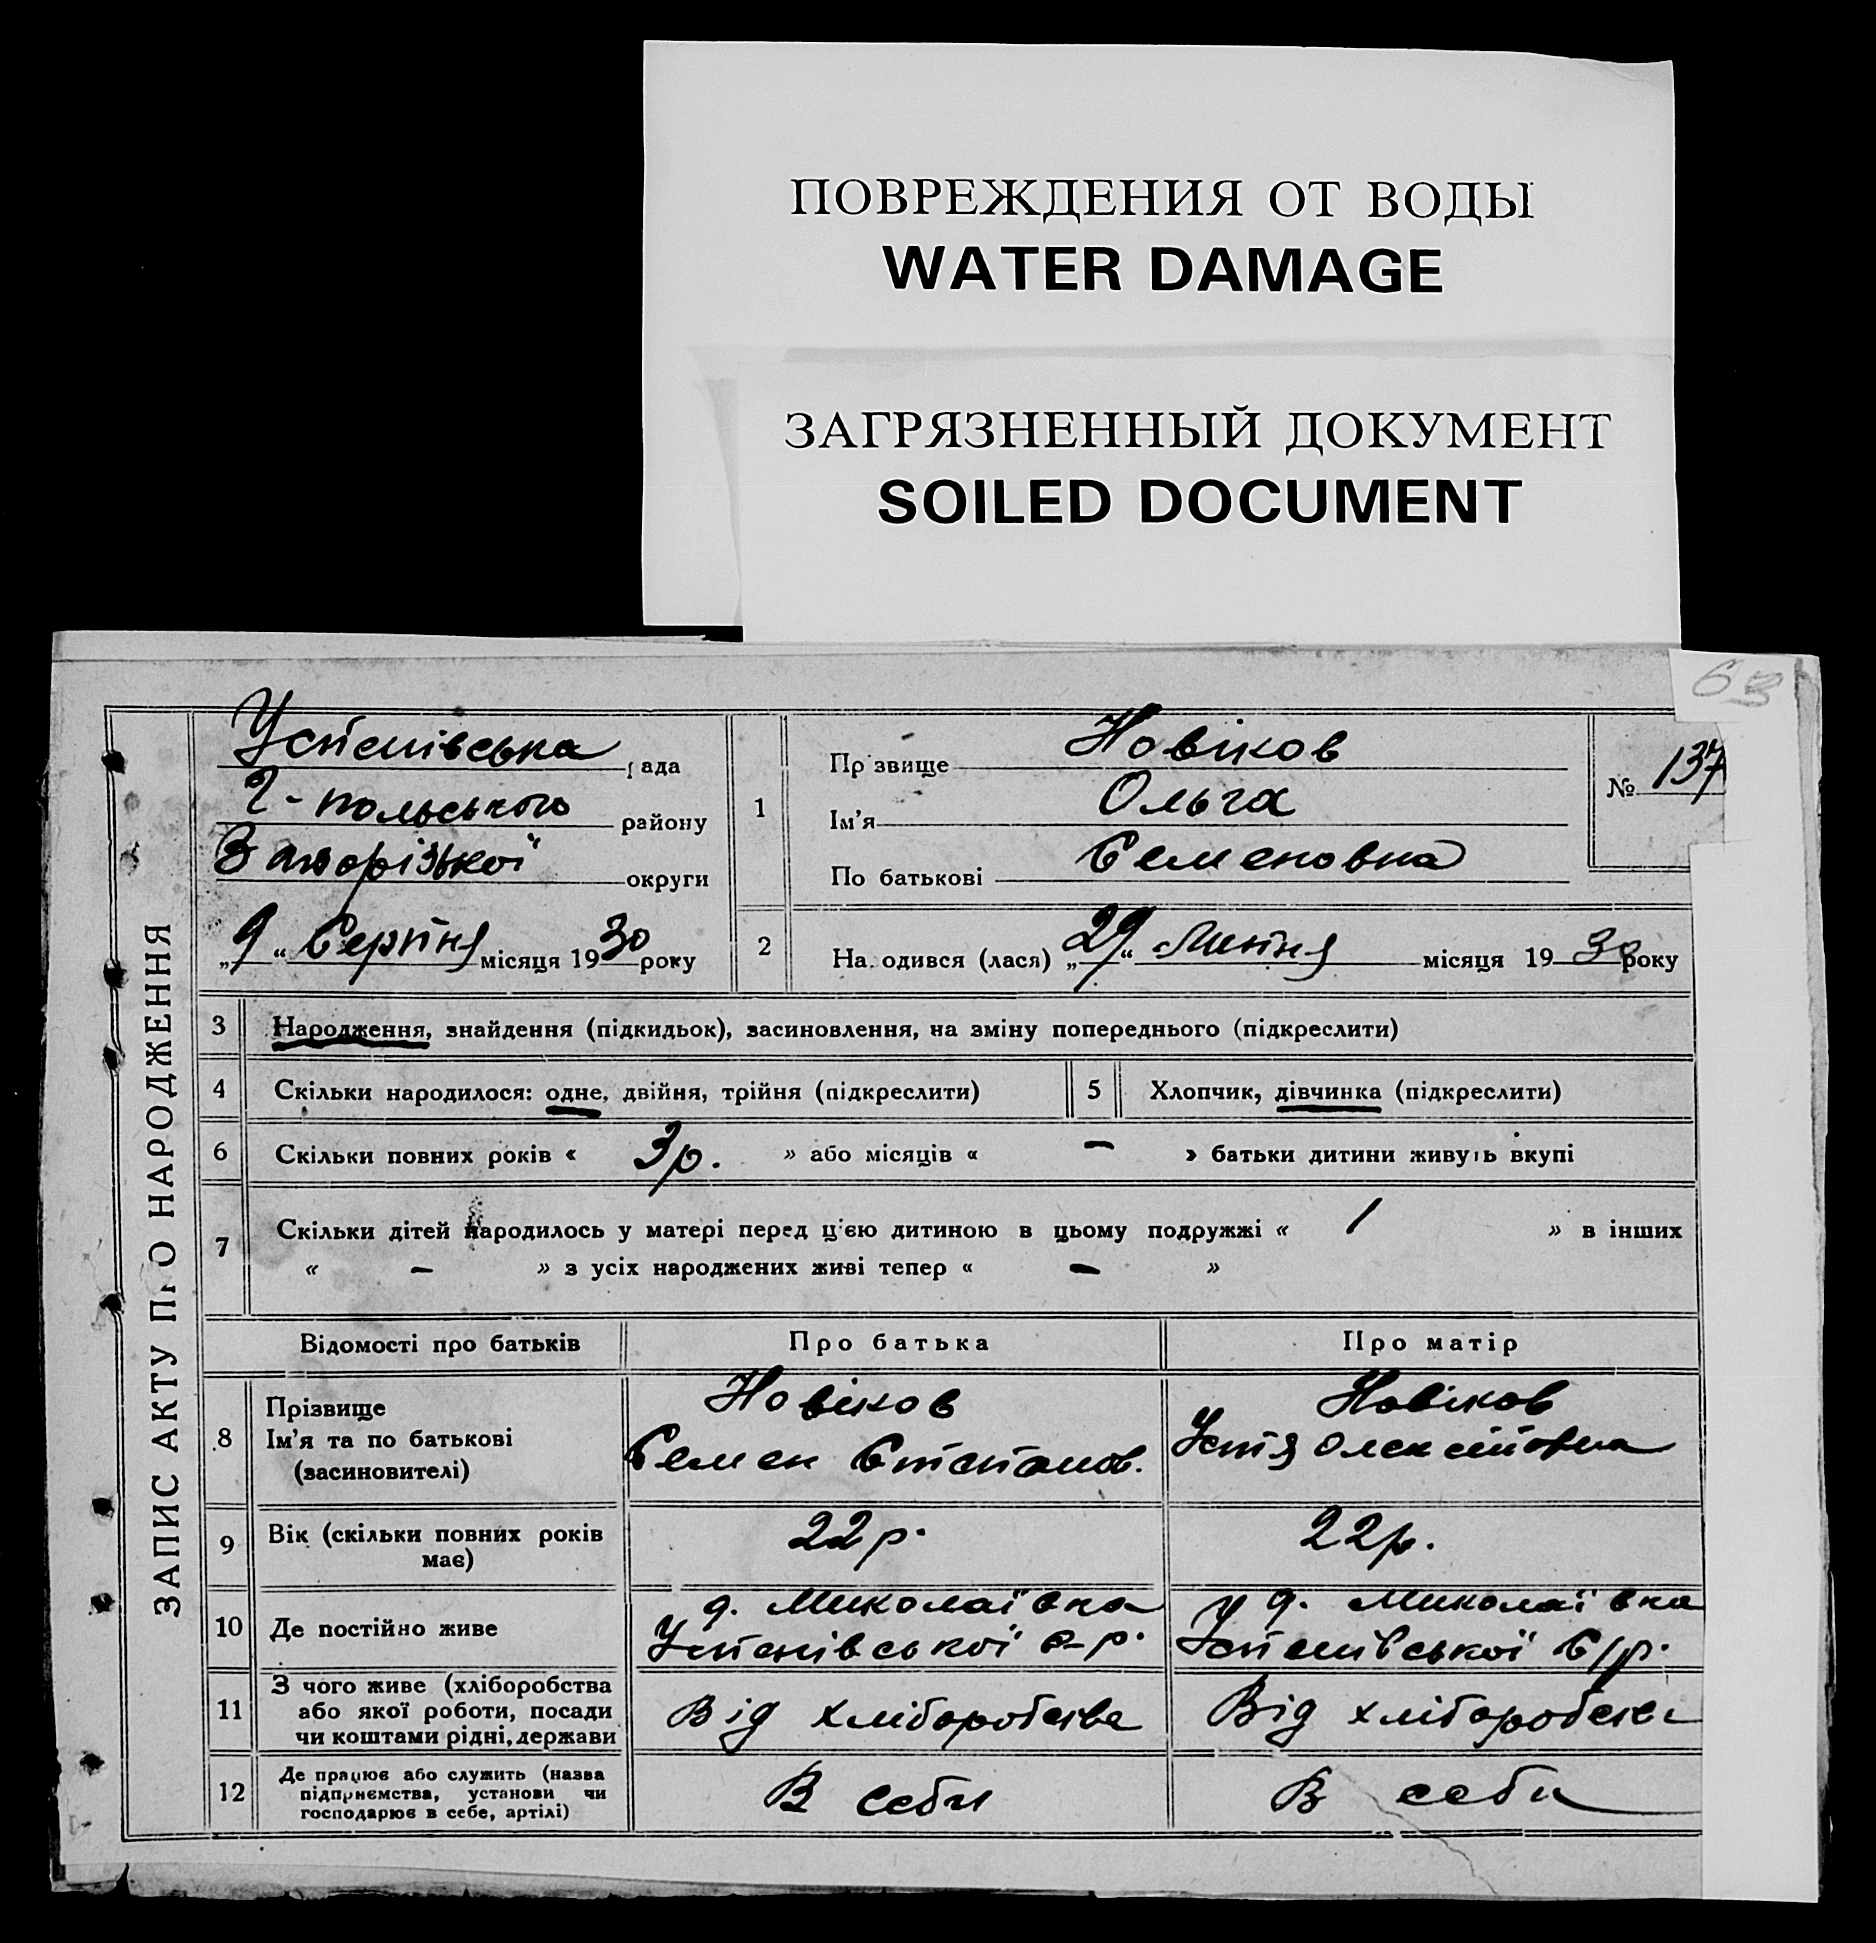 ПОВРЕЖДЕНИЯ ОТ ВОДЫ
WATER DAMAGE
ЗАГРЯЗНЕННЫЙ ДОКУМЕНТ
SOILED DOCUMENT
63
ЗАПИС АКТУ ПРО НАРОДЖЕННЯ
Успенівська рада
Г-польського району
Запорізької округи
„9“ Серпня місяця 1930 року
1
Прізвище Новіков
Ім'я Ольга
По батькові Семеновна
№ 137
2 Народився (лася) „29“ Липня місяця 1930 року
3 Народження, знайдення (підкидьок), засиновлення, на зміну попереднього (підкреслити)
4 Скільки народилося: одне, двійня, трійня (підкреслити)
5 Хлопчик, дівчинка (підкреслити)
6 Скільки повних років « 3 р. » або місяців « — » батьки дитини живуть вкупі
7 Скільки дітей народилось у матері перед цією дитиною в цьому подружжі « 1 » в інших
« — » з усіх народжених живі тепер « — »
Відомості про батьків Про батька Про матір
8 Прізвище
Ім'я та по батькові
(засиновителі)
Новіков
Семен Степанов.
Новіков
Устя Олексіївна
9 Вік (скільки повних років
має)
22 р.
22 р.
10 Де постійно живе
д. Миколаївка
Успенівської с-р.
д. Миколаївка
Успенівської с/р.
11 З чого живе (хліборобства
або якої роботи, посади
чи коштами рідні, держави
Від хліборобства
Від хліборобства
12 Де працює або служить (назва
підприємства, установи чи
господарює в себе, артілі)
В себи
В себи